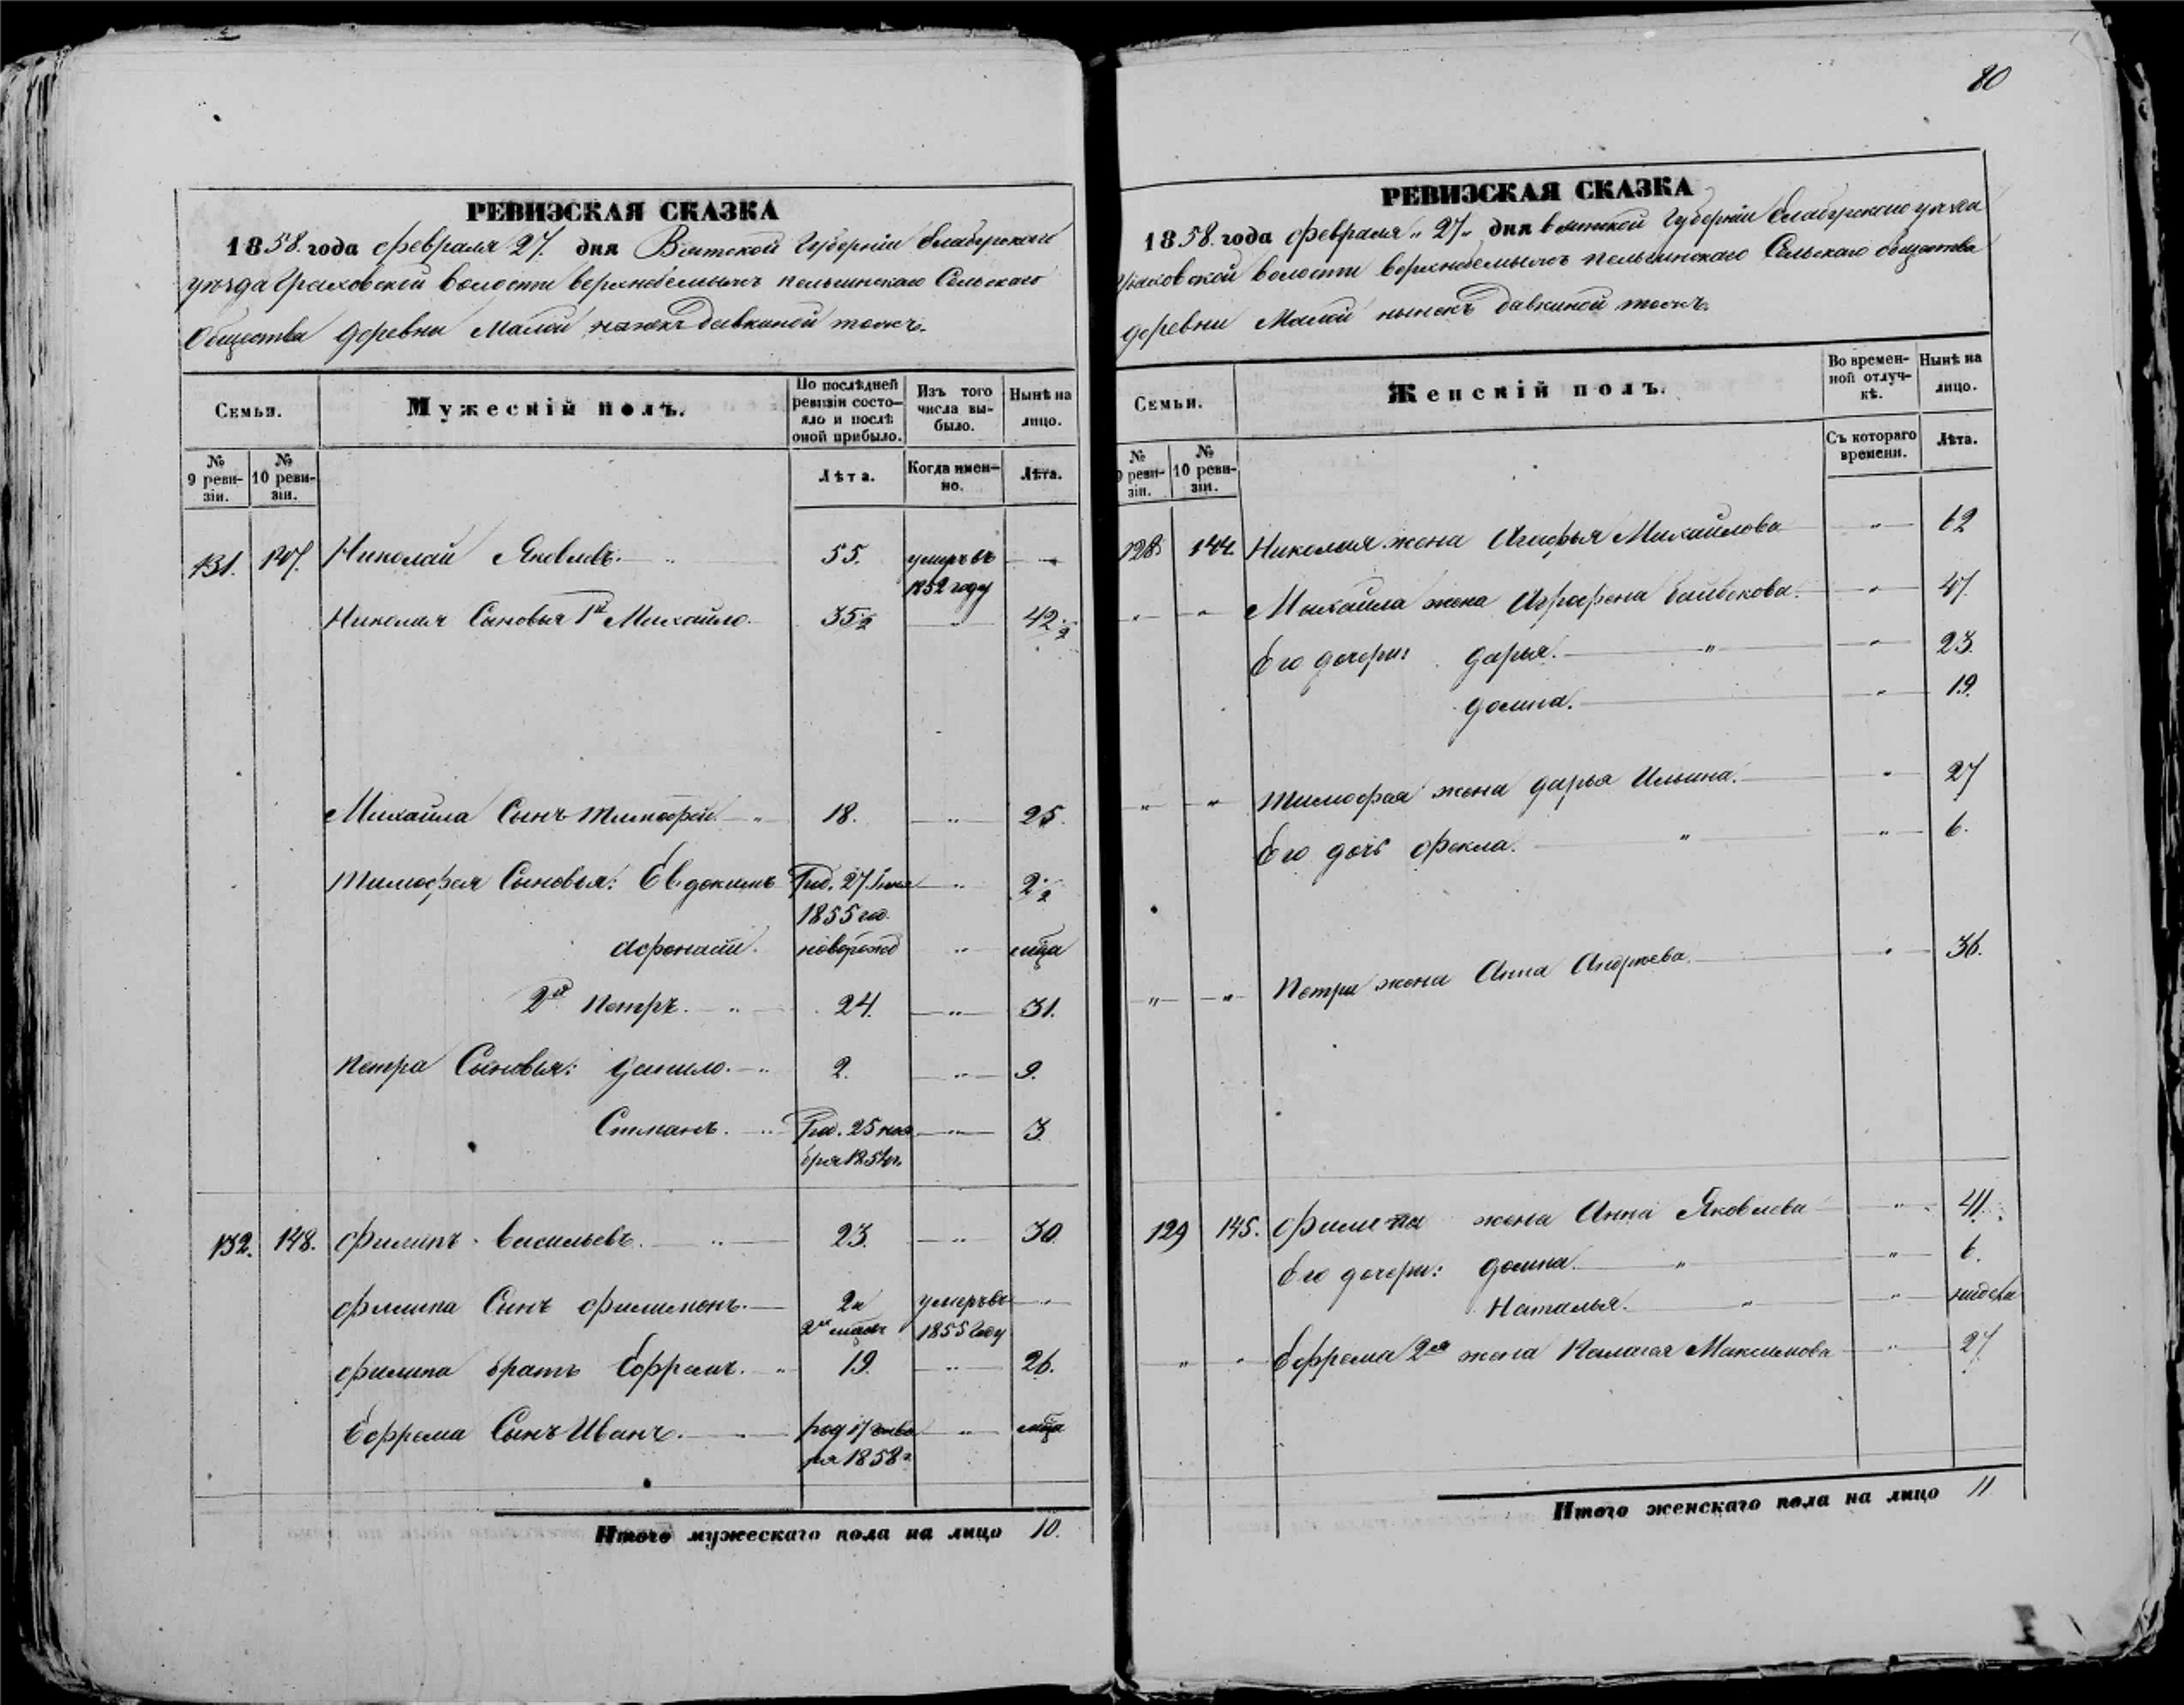 РЕВИЗСКАЯ СКАЗКА
1858. года февраля 27. дня Вятской Губерніи Елабугскаго
уѣзда Граховской волости Сельскаго
Общества деревни Малой Давкиной тожъ.
Семьи.
Мужескій полъ.
По послѣдней ревизіи состояло и послѣ оной прибыло.
Изъ того числа выбыло.
Нынѣ на лицо.
№ 9 ревизіи.
№ 10 ревизіи.
Лѣта.
Когда именно.
Лѣта.
131. 147. Николай Яковлевъ. 55. умеръ въ
1852 году
Николая Сыновья 1й Михайло. 35 1/2 42 1/2
Михаила Сынъ Тимофей. 18. 25.
Тимофея Сыновья: Евдокимъ Род. 27 2 1/2
1855 год.
Афонасій. новорожд
2й Петръ. 24. 31.
Петра Сыновья: Данило. 2. 9.
Степанъ. Род. 25 ноя 3
бря 1854 г.
132. 148. Филипъ Васильевъ. 23. 30.
Филипа Сынъ Филимонъ. умеръ въ
1855 году
Филипа братъ Ефремъ. 19. 26.
Ефрема Сынъ Иванъ. род 17 янва
ря 1858 г
Итого мужескаго пола на лицо 10.
80
РЕВИЗСКАЯ СКАЗКА
1858. года февраля 27 дня Вятской Губерніи Елабугскаго уѣзда
Граховской волости Сельскаго общества
деревни Малой Давкиной тожъ.
Семьи.
Женскій полъ.
Во временной отлучкѣ.
Нынѣ на лицо.
№ 9 ревизіи.
№ 10 ревизіи.
Съ котораго времени.
Лѣта.
128 144. Николая жена Агафья Михайлова 62
Михаила жена Аграфена 47.
Его дочери: Дарья. 23.
Домна. 19.
Тимофея жена Дарья Ильина. 27
Его дочь Фекла. 6.
Петра жена Анна Андреева 36.
129 145. Филипа жена Анна Яковлева 41.
Его дочери: Домна. 6.
Наталья. недели
Ефрема 2я жена Палагея Максимова 27
Итого женскаго пола на лицо 11